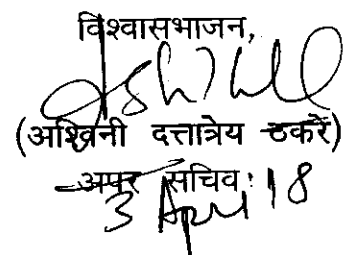 विश्वासभाजन,
(अश्विनी दत्तात्रेय ठकरे)
अपर सचिव
3 April 18